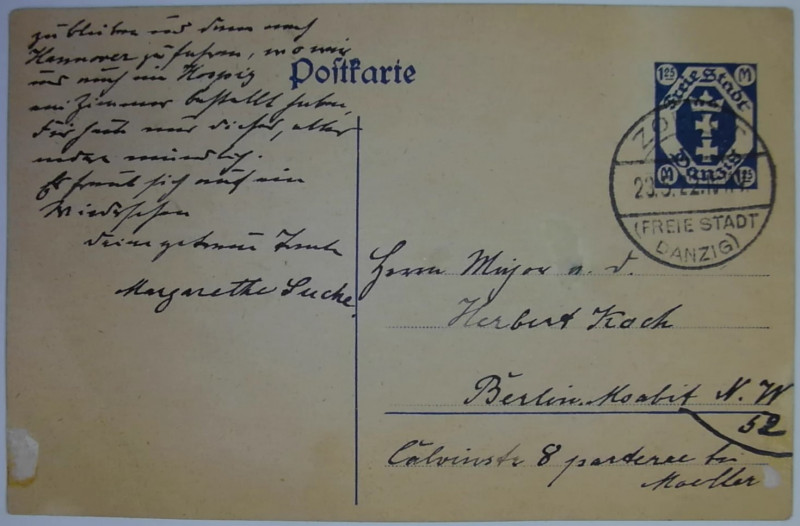 zu bleiben und dann nach
Hannover zu fahren, wo wir
uns auch im Hospiz
ein Zimmer bestellt haben.
Für heute nur dieses, alles
andere mündlich.
Es freut sich auf ein
Wiedersehen
Deine getreue Tante
Margarethe
Postkarte
1.25 M
Freie Stadt
Danzig
M 1.25
ZOPPOT
(FREIE STADT
DANZIG)
Herrn Major a. d.
Herbert Koch
Berlin-Moabit N. W
52
Calvinstr 8 parterre bei
Moeller